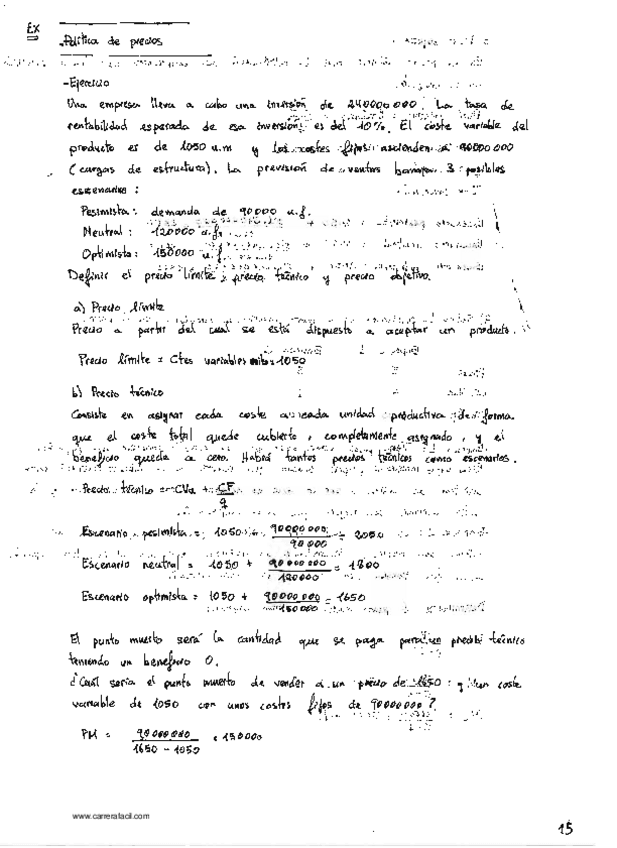 Ex
Política de precios
-Ejercicio
Una empresa lleva a cabo una inversión de 240000000. La tasa de
rentabilidad esperada de esa inversión es del 10%. El coste variable del
producto es de 1050 u.m y los costes fijos ascienden a 90000000
(cargas de estructura). La previsión de ventas 3 posibles
escenarios :
Pesimista : demanda de 90000 u.f.
Neutral : 120000 u.f.
Optimista : 150000 u.f.
Definir el precio límite, precio técnico y precio objetivo.
a) Precio límite
Precio a partir del cual se está dispuesto a aceptar un producto.
Precio límite = Ctes variables = 1050
b) Precio técnico
Consiste en asignar cada coste a cada unidad productiva de forma
que el coste total quede cubierto, completamente asignado, y el
beneficio queda a cero. Habrá tantos precios técnicos como escenarios.
Precio técnico = CVu + CF/q
Escenario pesimista = 1050 + 90000000/90000 = 2050
Escenario neutral = 1050 + 90000000/120000 = 1800
Escenario optimista = 1050 + 90000000/150000 = 1650
El punto muerto será la cantidad que se paga para un precio técnico
teniendo un beneficio 0.
¿Cuál sería el punto muerto de vender a un precio de 1650 y un coste
variable de 1050 con unos costes fijos de 90000000?
PM = 90000000/1650 - 1050 = 150000
www.carrerafacil.com
15